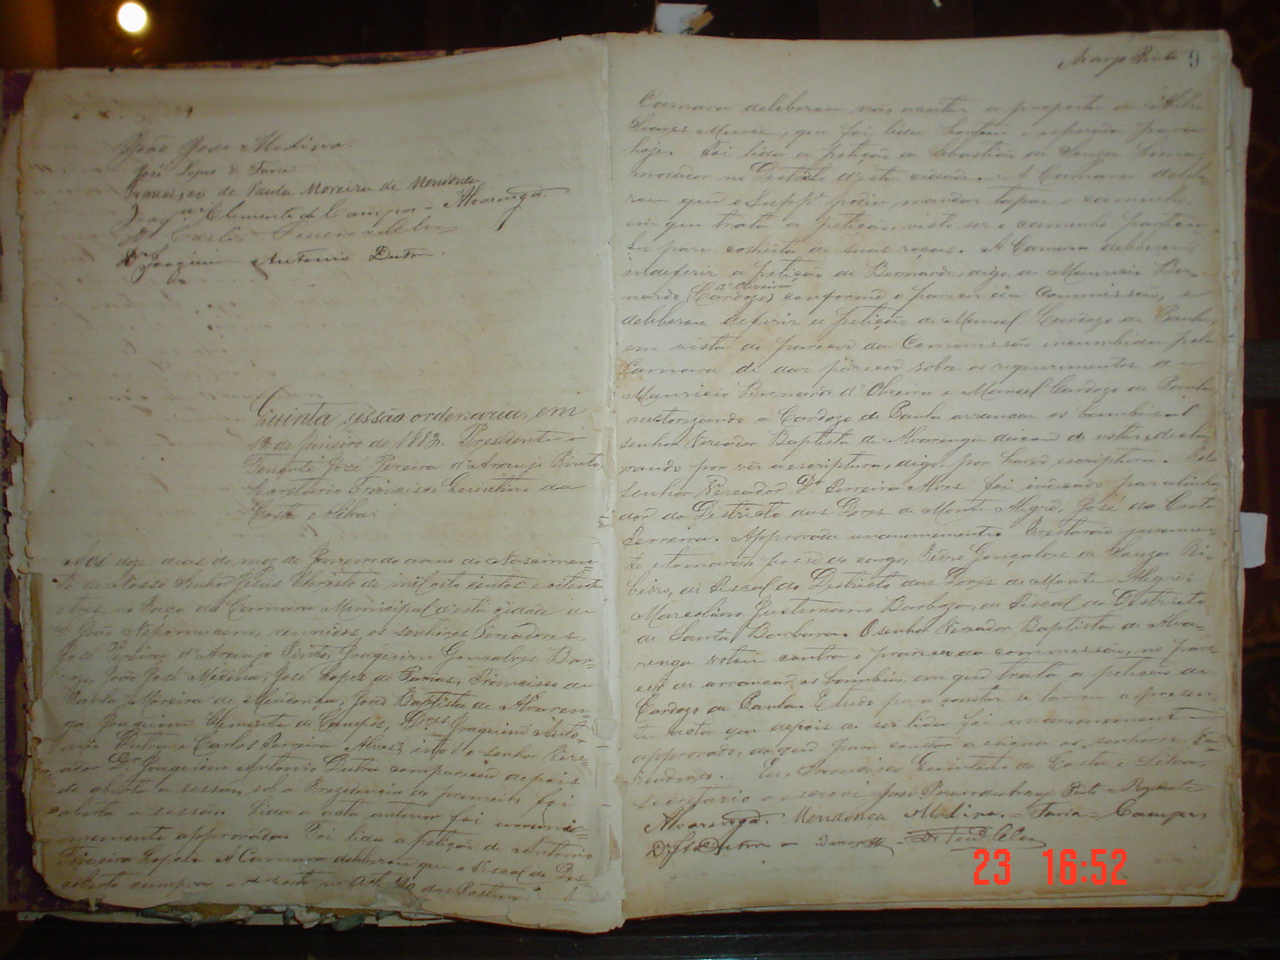 João José Medina.
José Lopes de Faria
Francisco de Paula Moreira de Mendonça
Joaqm Clemente de Campos = Alvarenga
Dr Carlos Ferreira Alves
Dr Joaquim Antonio Dutra.
Quinta sessão ordenaria, em
12 de Janeiro de 1883. Presidente o
Tenente José Pereira d'Araujo Pinto,
Secretario Francisco Quintino da
Costa e Silva.
Aos doze dias do mez de Janeiro do anno do Nascimen-
to de Nosso Senhor Jesus Christo de mil oito centos e oitenta
e tres no Paço da Camara Municipal d'esta cidade de
S. João Nepomuceno, reunidos os senhores Vereadores,
José Pereira d'Araujo Pinto, Joaquim Gonçalves Bar-
João José Medina, José Lopes de Farias, Francisco de
Paula Moreira de Mendonça, João Baptista de Alvaren
ga Joaquim Clemente de Campos, Dres Joaquim Anto-
nio Dutra e Carlos Ferreira Alves, isto é o senhor Vere-
ador Dr Joaquim Antonio Dutra compareceu depois
de aberta a sessão, sob a Prezidencia do primeiro, foi
aberta a sessão. Lida a acta anterior foi unani-
memente approvada. Foi lida a petição de Antonio
Teixeira Lopes. A Camara deliberou que o Fiscal do Des
coberto cumpra o no Art. das Postura
Araujo Pinto 9
Camara deliberou não aceitar a proposta de
Soares, que foi lida hontem e para
hoje. Foi lida a petição de Sebastião de Souza Lima,
morador no Destricto d'esta cidade. A Camara delibe
rou que o Suppe podia mandar tapar o caminho
em que trata a petição, visto ser o caminho particu-
lar para de suas roças. A Camara deliberou
indeferir a petição de Bernardo, digo, de Mauricio Ber-
nardo (Cardozo) d'Oliveira conforme o parecer da Commissão, e
deliberou deferir a petição de Manoel Cardozo de Paula,
em vista do parecer da Commissão incumbida pela
Camara de dar parecer sobre os requerimentos de
Mauricio Bernardo d'Oliveira e Manoel Cardozo de Paula
autorizando a Cardozo de Paula arrancar os bambús. O
senhor Vereador Baptista de Alvarenga deixou de votar, decla
rando por ser a escriptura, digo, por haver escriptura. Pelo
senhor Vereador Dr Ferreira Alves foi indicado para alinha
dor do Destricto das Dores de Monte Alegre, José da Costa
Ferreira. Approvada unanimemente. Prestarão juramen-
to e tomarão posse do cargo, Pedro Gonçalves de Souza Ri-
beiro, de Fiscal do Destricto das Dores de Monte-Alegre;
Marcolino Justiniano Barboza, de Fiscal do Destricto
de Santa Barbara. O senhor Vereador Baptista de Alva-
renga votou contra o parecer da commissão, no par-
em que trata a petição de
Cardozo de Paula. E tudo para constar se lavrou a presen
te acta que depois de ser lida foi unanimemente
approvada, do que para constar assigna os senhores Ve-
readores. Eu, Francisco Quintino da Costa e Silva,
secretario o escrevi José Pereira d'Araujo Pinto = Prezidente
Alvarenga. Mendonça Medina. = Faria = Campos
Dr Dutra =
23 16:52